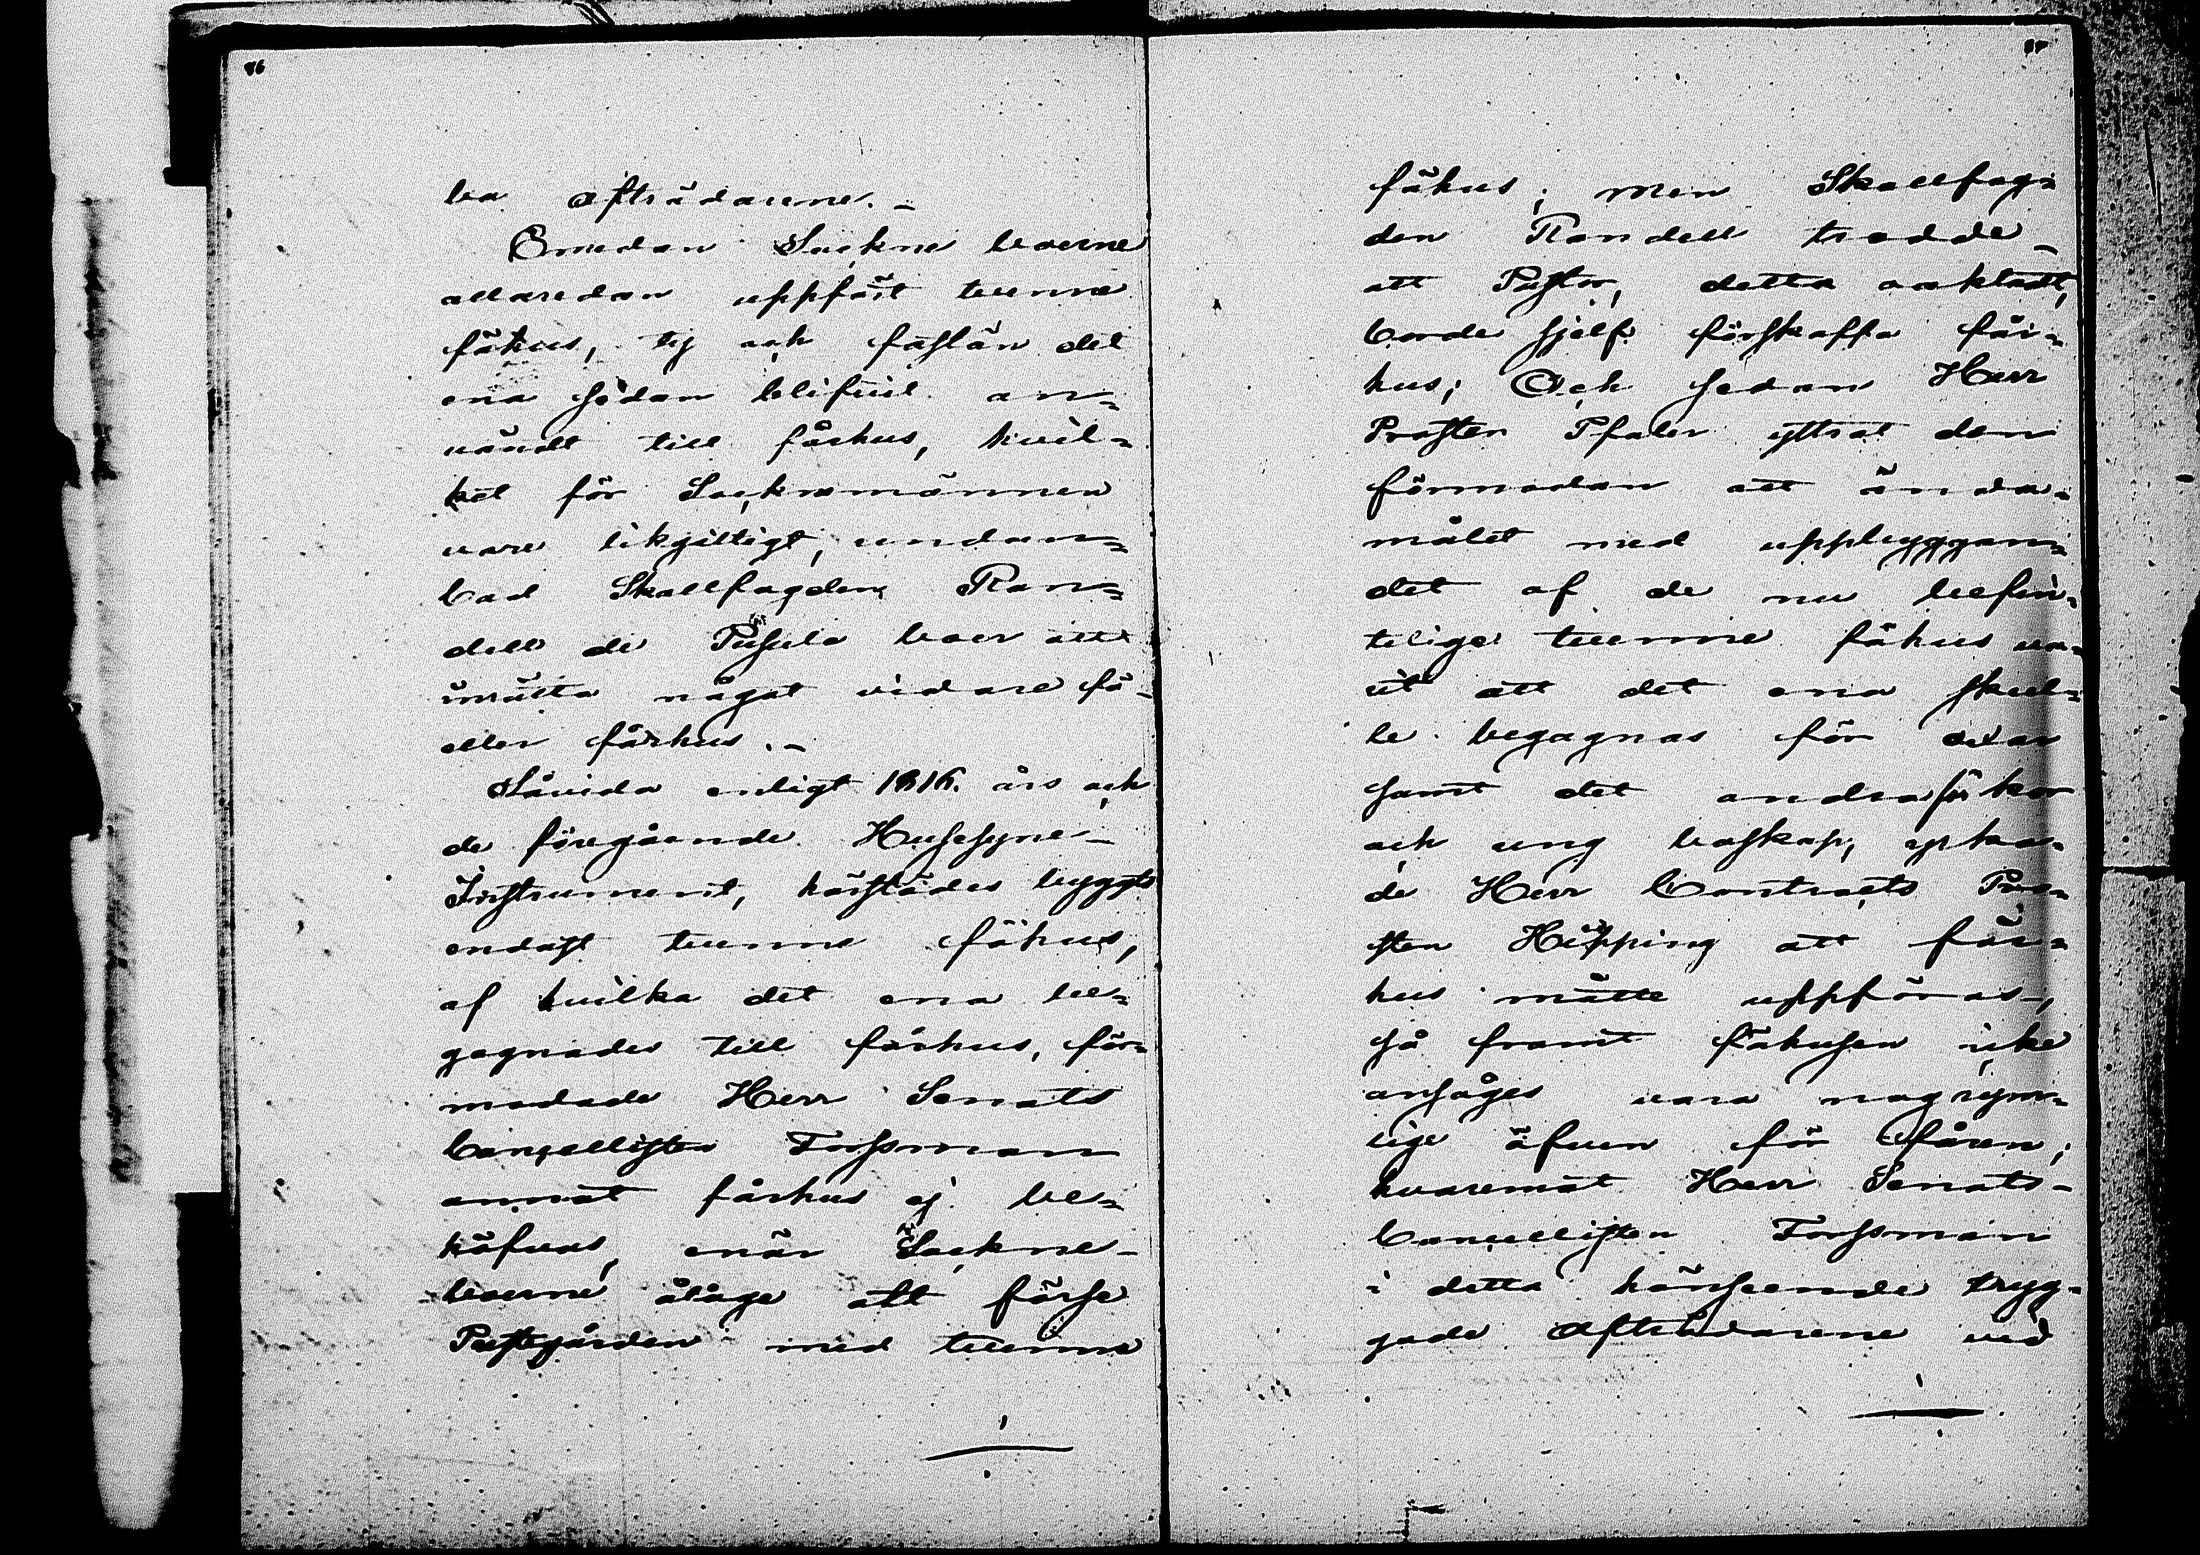 76
ba afträdarene. –
Emedan Sockne boerne
allaredan uppfört tvenne
fähus, ty och fastän det
ena sedan blifvit an=
vändt till fårhus, hvil=
ket för Socknemännen
vare likgiltigt, undan=
bad Skallfogden Ran=
dell de Pusula boer att
inrätta något vidare fä-
eller fårhus. –
Såvida enligt 1816. års och
de föregående Husesyne-
Instrument, härstädes byggts
endast tvenne fähus,
af hvilka det ena be=
gagnades till fårhus, för=
modade Herr Senats
Cancellisten Forssman
annat fårhus ej be=
höfvas, enär Sockne-
boerne ålåge att förse
Prestgården med tvenne
87
fähus; men Skallfog=
den Randell trodde –
att Pastor, detta oaktadt,
borde sjelf förskaffa får=
hus; Och sedan Herr
Prosten Pfaler yttrat den
förmodan att ända=
målet med uppbyggan=
det af de nu befin=
telige tvenne fähus va=
rit att det ena skul=
le begagnas för oxar
samt det andra för kor
och ung boskap, yrka=
de Herr Contracts Pro=
sten Hipping att får=
hus måtte uppföras,
så framt fähusen icke
ansåges vara nog rym=
lige äfven för fåren;
hvaremot Herr Senats-
Cancellisten Forssman
i detta hänseende tryg=
gade Afträdarene vid